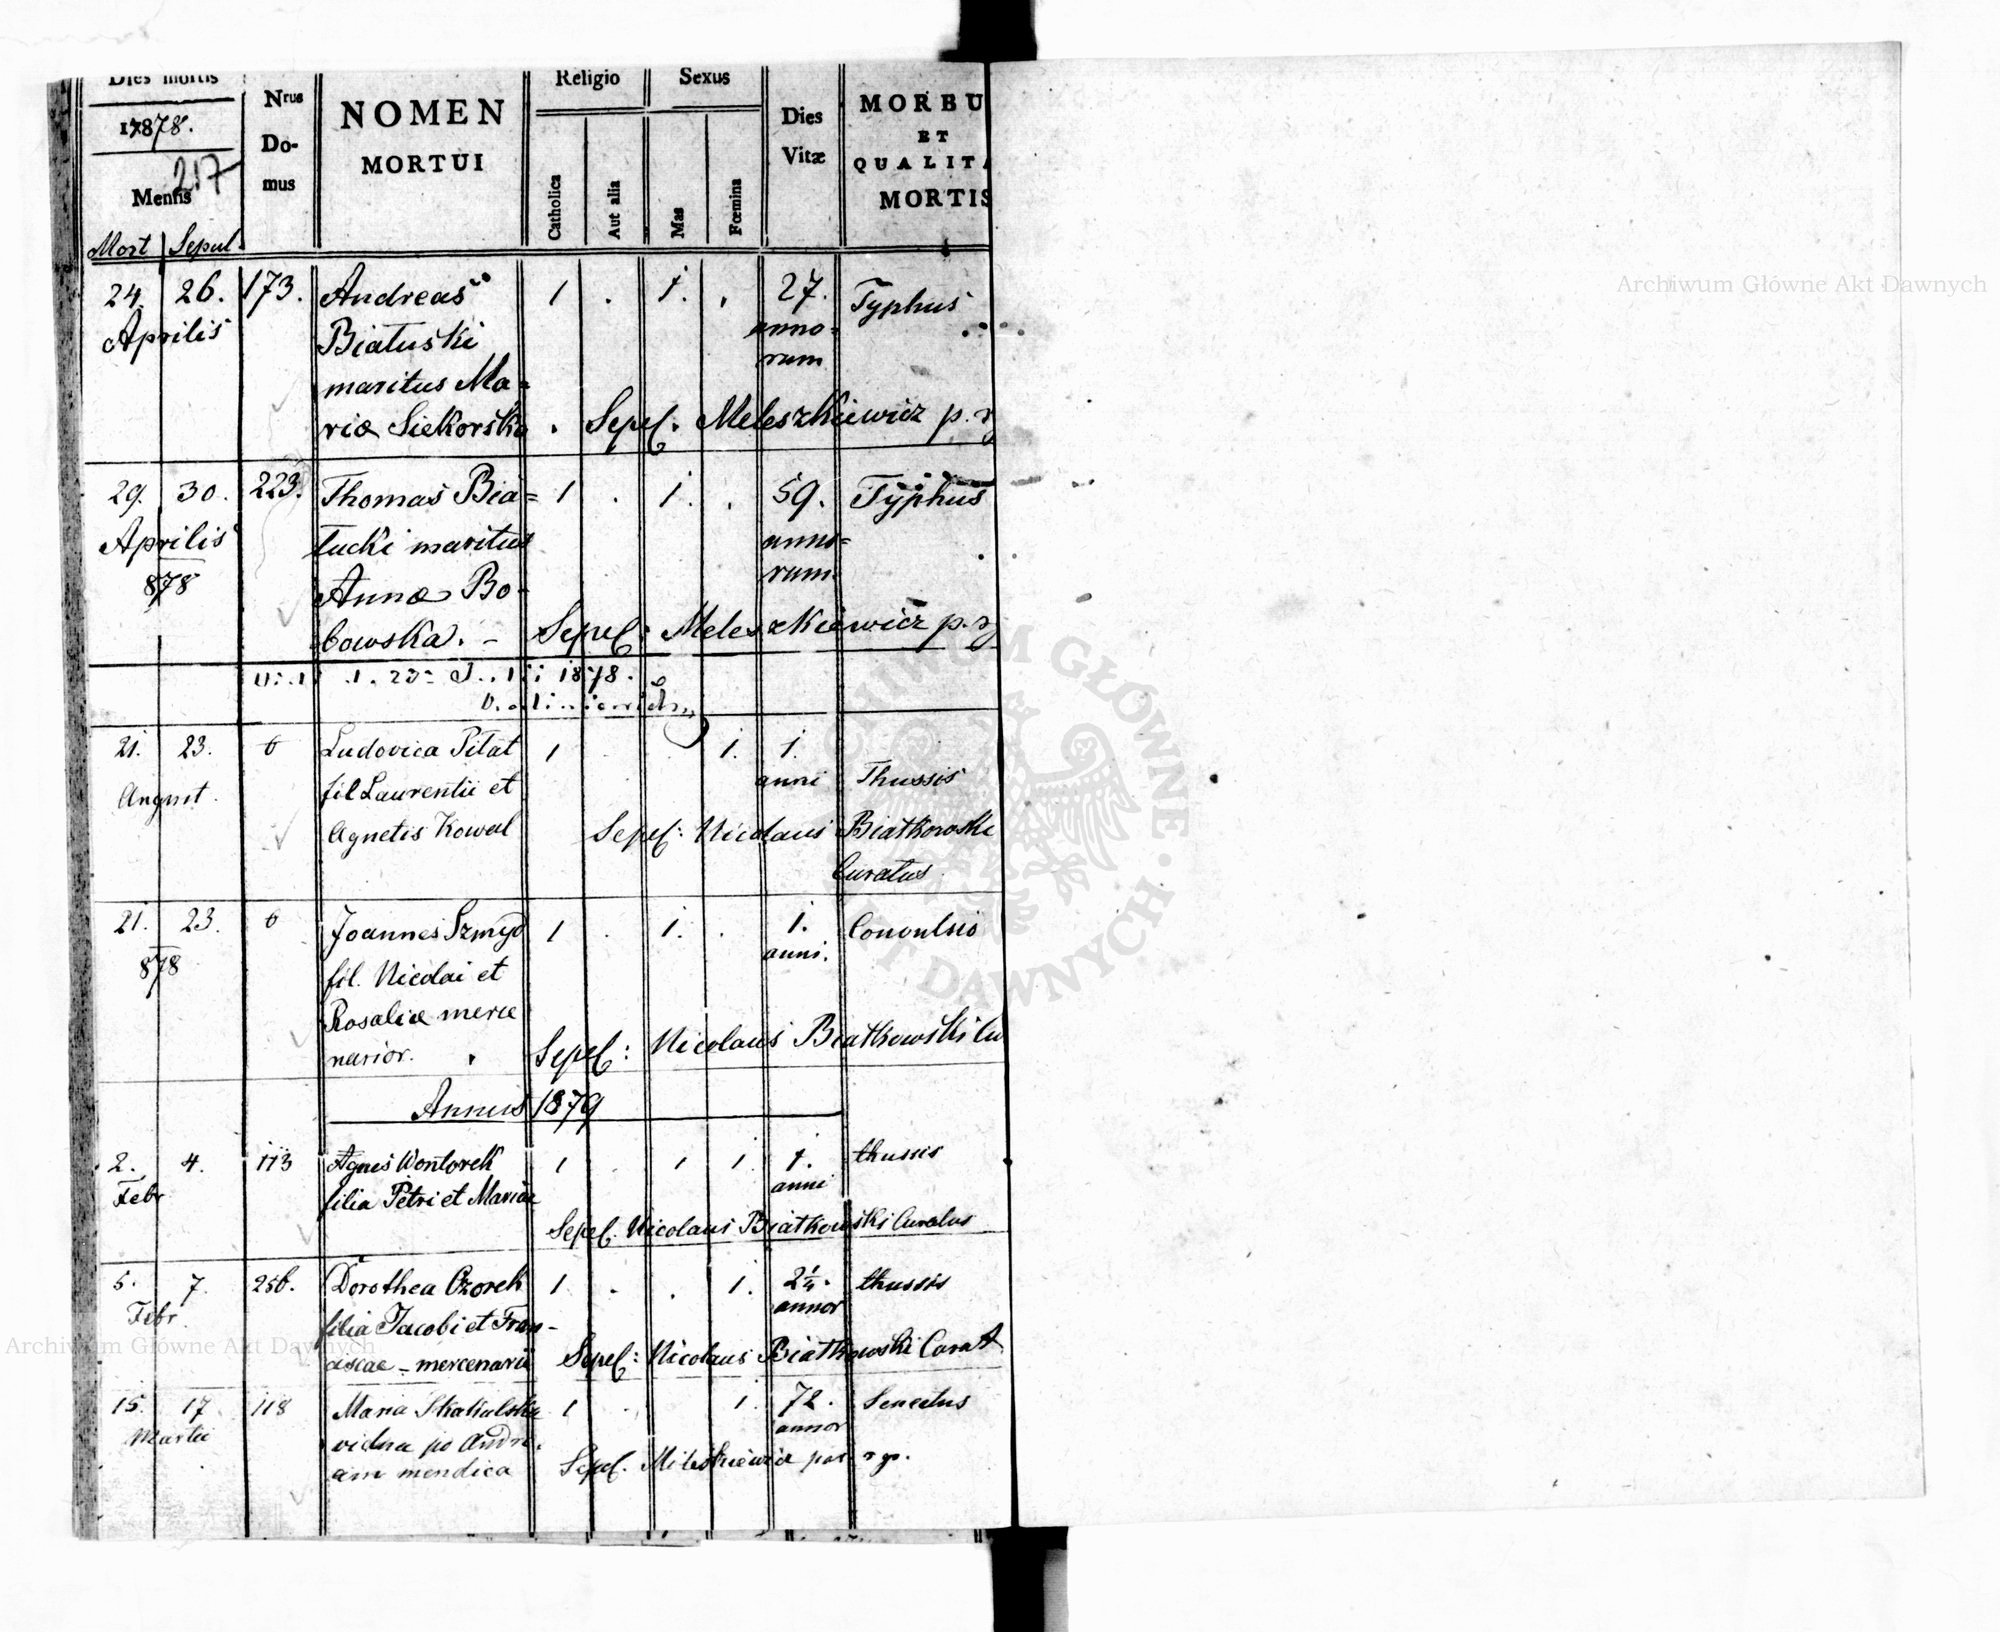 Dies mortis
Nrus Domus
NOMEN MORTUI
Religio
Sexus
Dies Vitæ
MORBU
ET
QUALITA
MORTIS
1878.
217
Mensis
Mort Sepul.
Catholica
Aut alia
Mas
Fœmina
24. 26. 173. Andreas 1 . 1. . 27. Typhus
Aprilis Białuski anno=
maritus Ma= rum
riæ Siekorska . Sepel. Meleszkiewicz p. r
29. 30. 223. Thomas Bia= 1 . 1. . 59. Typhus
Aprilis łucki maritus anno=
878 Annæ Bo- rum.
bowska. - Sepel: Meleszkiewicz p. r
1878.
21. 23. 0 Ludovica Pitat 1 . . 1. 1.
August. fil Laurentii et anni Thussis
Agnetis Kowal Sepel: Nicolaus Białkowski
Curatus
21. 23. 0 Joannes Szmyd 1 . 1. . 1. Convulsis
878 fil. Nicolai et anni.
Rosaliæ merce
narior. Sepel: Nicolaus Białkowski Cu
Annus 1879
2. 4. 113 Agnes Wontorek 1 . 1 1. 1. thussis
Febr filia Petri et Mariae anni
Sepel. Nicolaus Białkowski Curatus
5. 7. 256. Dorothea Ozorek 1 . . 1. 2 1/4. thussis
Febr. filia Jacobi et Fran- annor
ciscae - mercenarii Sepel: Nicolaus Białkowski Curat
15. 17 118 Maria Skakalska 1 . 1. 72. Senectus
Martii vidua po Andre. annor
am mendica Sepel. Mileskiewicz par rgr.
Archiwum Główne Akt Dawnych
Archiwum Główne Akt Dawnych
ARCHIWUM GŁÓWNE AKT DAWNYCH